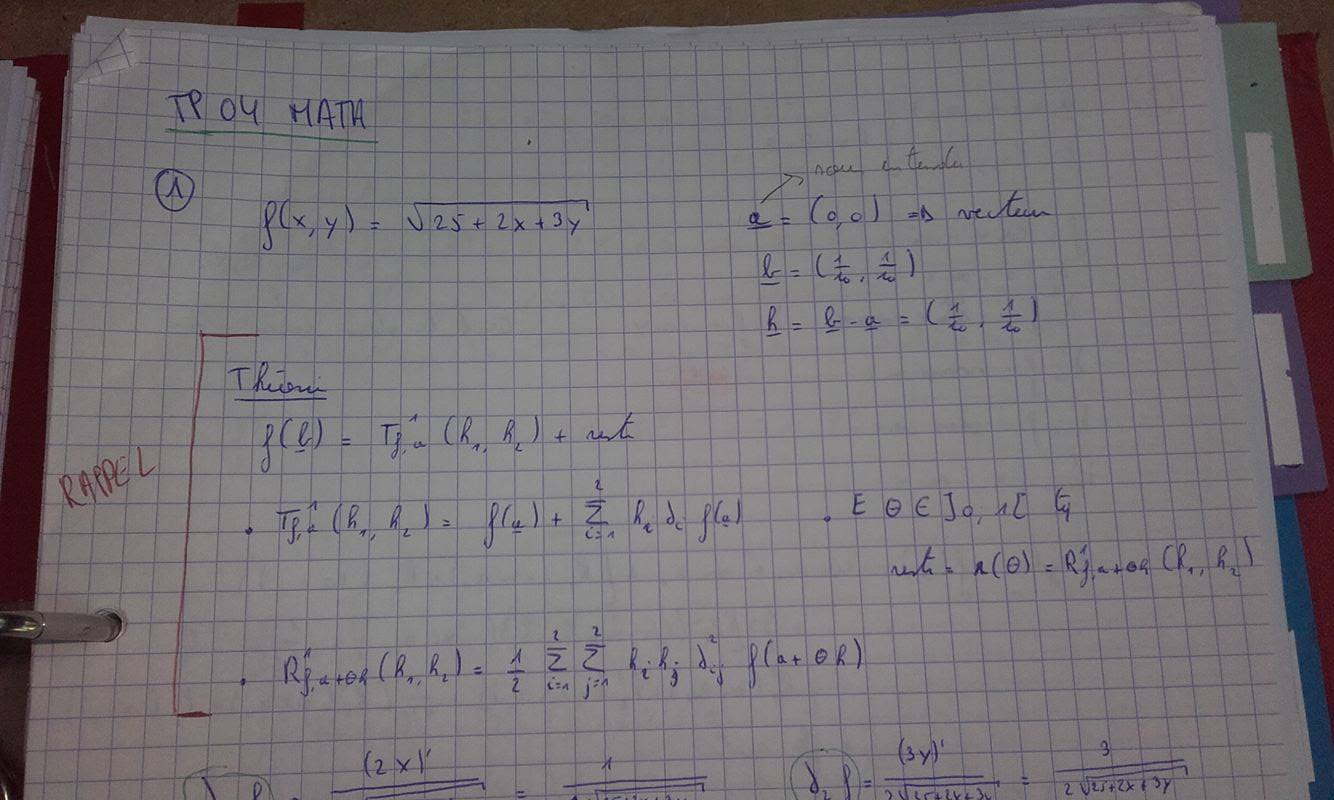 TP 04 MATH
① f(x, y) = √25 + 2x + 3y
a = (0,0) => vecteur
b = (1/10, 1/10)
h = b - a = (1/10, 1/10)
Théorie
f(b) = T¹f,a (h₁, h₂) + reste
RAPPEL
. T¹f,a (h₁, h₂) = f(a) + Σ²i=1 hi ∂i f(a) . E θ ∈ ]0, 1[ tq
reste = r(θ) = R¹f,a+θh (h₁, h₂)
. R¹f,a+θh (h₁, h₂) = 1/2 Σ²i=1 Σ²j=1 hi hj ∂²ij f(a + θh)
(2x)' = 1
∂₂ f = (3y)' / 2√25+2x+3y = 3 / 2√25+2x+3y